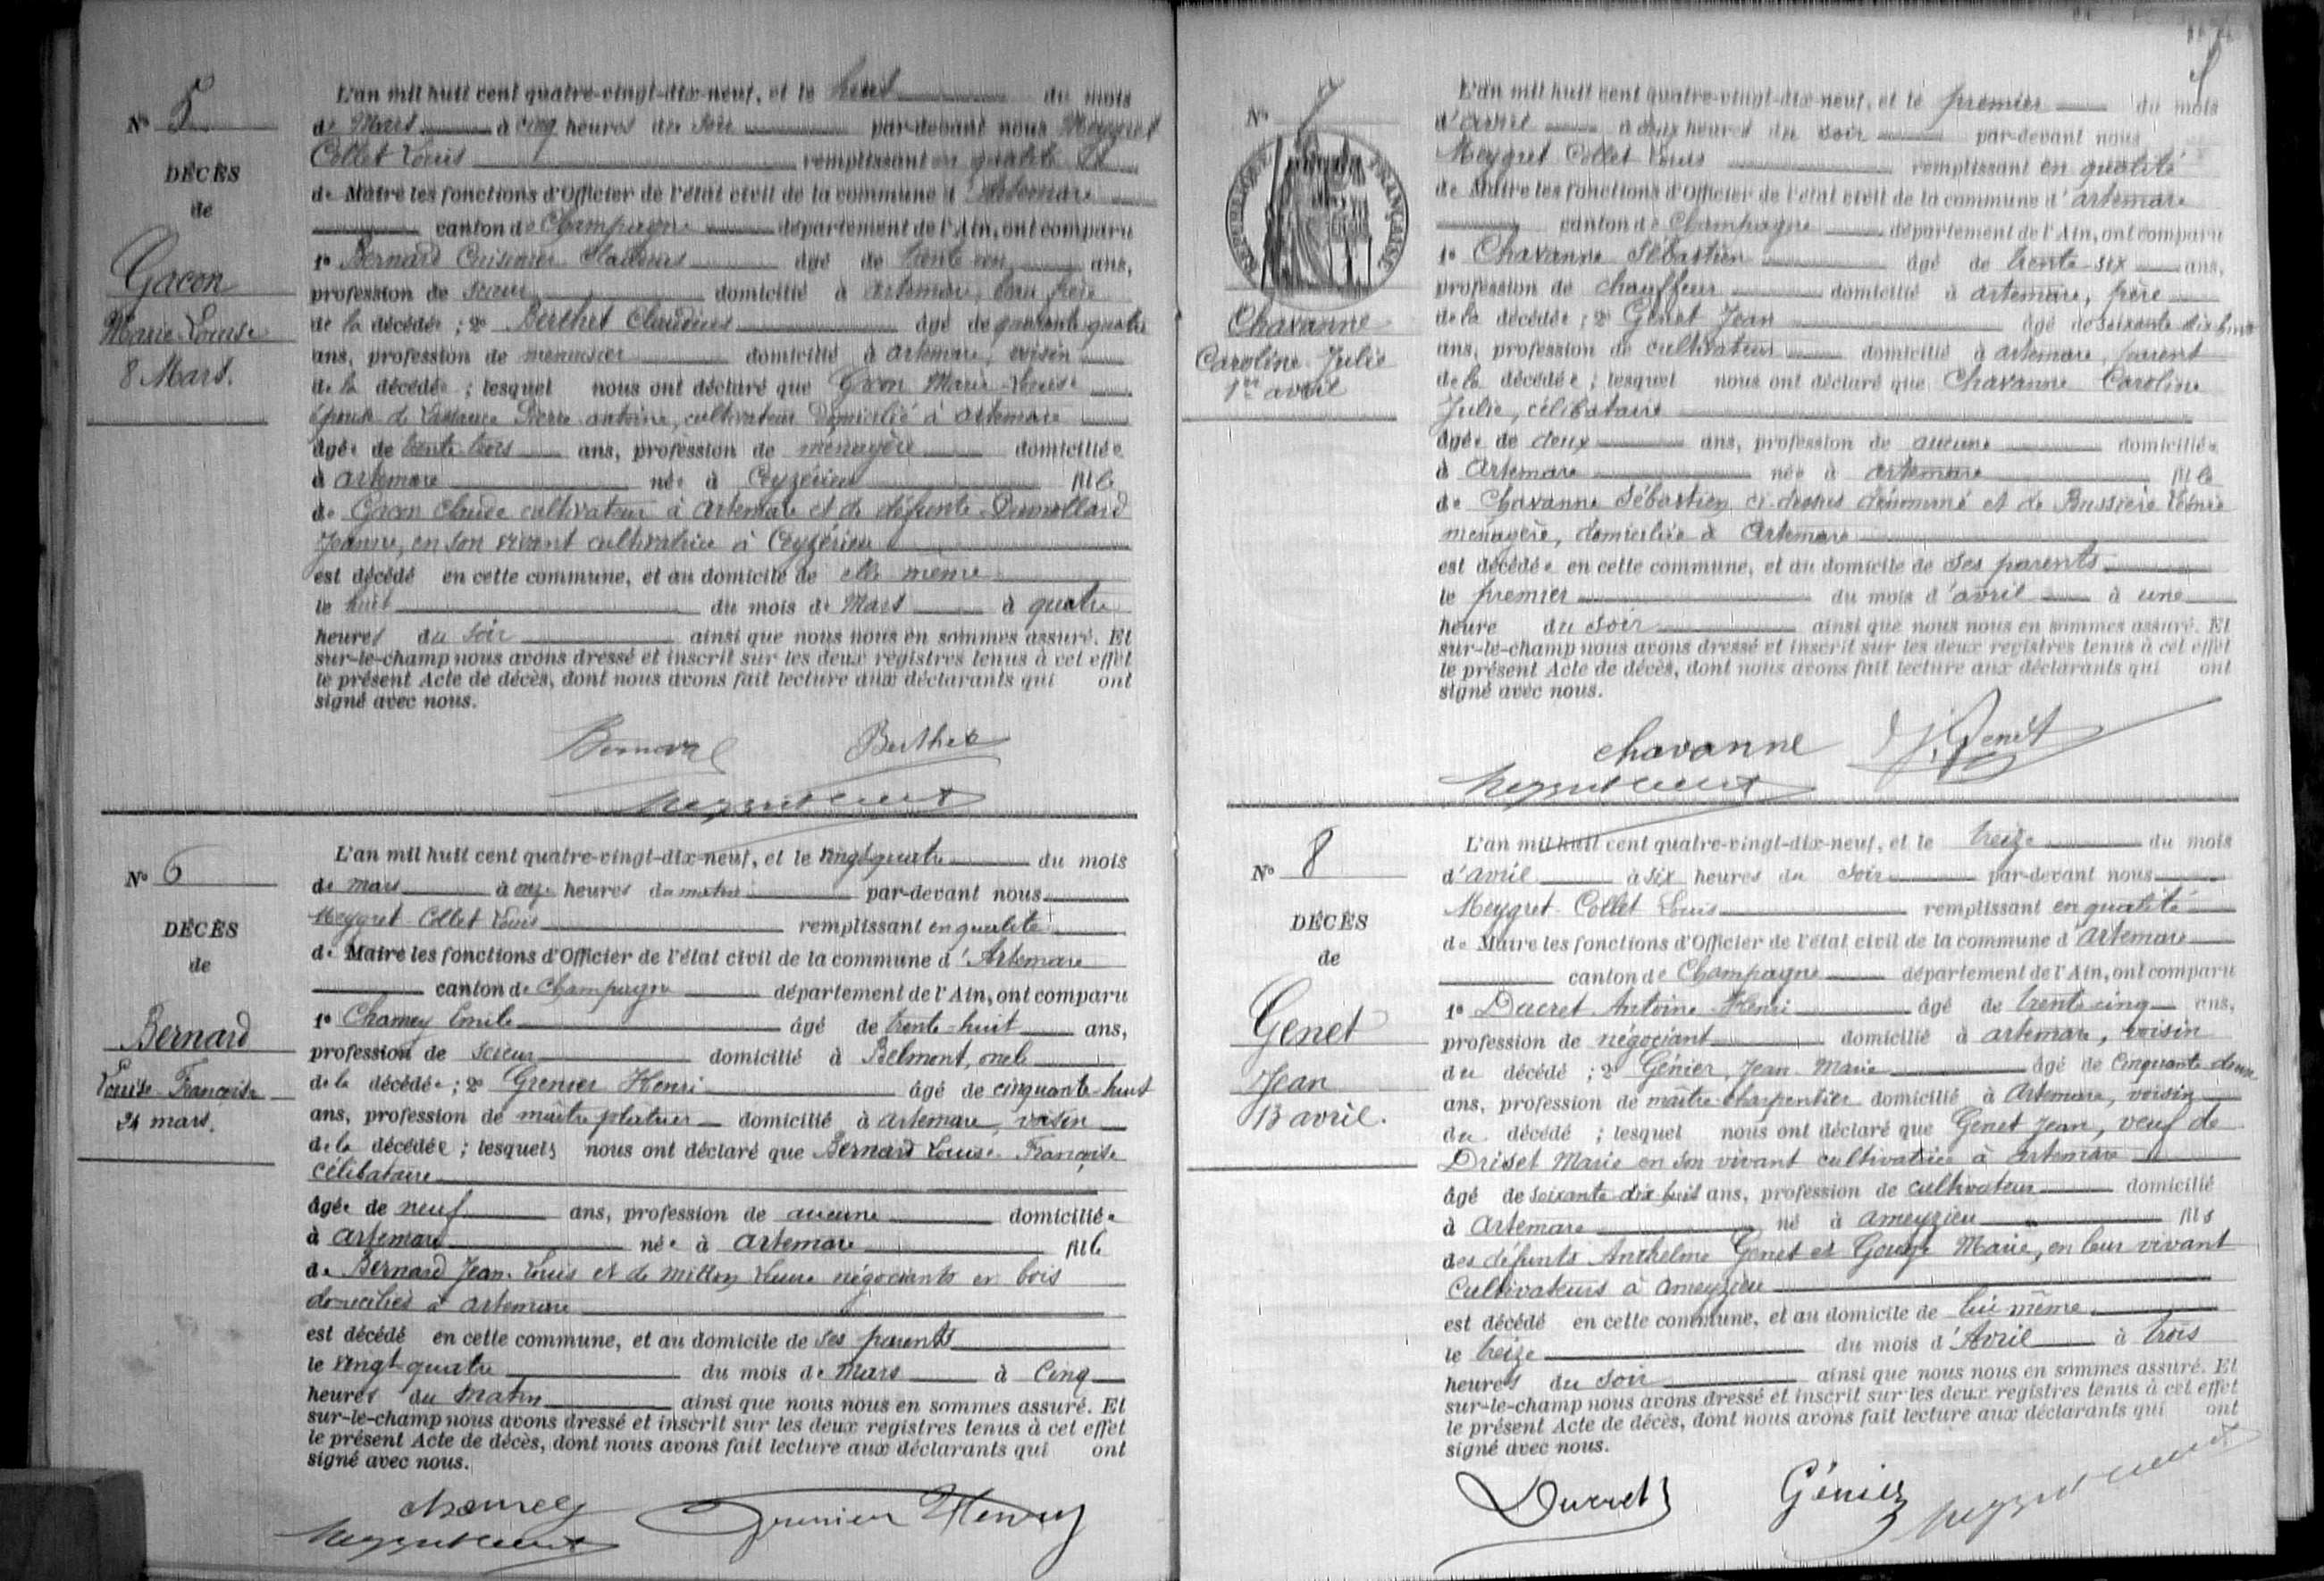 N° 5
DÉCÈS
de
Gacon
Marie-Louise
8 Mars.
L'an mil huit cent quatre-vingt-dix-neuf, et le huit du mois
de Mars à cinq heures du soir par-devant nous Meygret
Collet Louis remplissant en qualité
de Maire les fonctions d'Officier de l'état civil de la commune d'Artemare
canton de Champagne département de l'Ain, ont comparu
1° Bernard Cuisinier Claudius âgé de trente un ans,
profession de scieur domicilié à artemare, beau frère
de la décédée ; 2° Berthet Claudius âgé de quarante quatre
ans, profession de menuisier domicilié à artemare, voisin
de la décédée ; lesquel nous ont déclaré que Gacon Marie-Louise
épouse de Pierre antoine, cultivateur domicilié à artemare
âgée de trente trois ans, profession de ménagère domiciliée
à artemare née à Ceyzérieu fille
de Gacon Claude cultivateur à Artemare et de défunte Dumollard
Jeanne, en son vivant cultivatrice à Ceyzérieu
est décédé en cette commune, et au domicile de elle même
le huit du mois de Mars à quatre
heures du soir ainsi que nous nous en sommes assuré. Et
sur-le-champ nous avons dressé et inscrit sur les deux registres tenus à cet effet
le présent Acte de décès, dont nous avons fait lecture aux déclarants qui ont
signé avec nous.
Bernard Berthet
Meygretcollet
N° 6
DÉCÈS
de
Bernard
Louise Françoise
24 mars.
L'an mil huit cent quatre-vingt-dix-neuf, et le vingt-quatre du mois
de mars à onze heures du matin par-devant nous
Meygret Collet Louis remplissant en qualité
de Maire les fonctions d'Officier de l'état civil de la commune d'Artemare
canton de Champagne département de l'Ain, ont comparu
1° Chamey Emile âgé de trente-huit ans,
profession de scieur domicilié à Belmont, oncle
de la décédée ; 2° Grenier Henri âgé de cinquante-huit
ans, profession de maître plâtrier domicilié à artemare, voisin
de la décédée ; lesquels nous ont déclaré que Bernard Louise Françoise
célibataire
âgée de neuf ans, profession de aucune domiciliée
à artemare née à artemare fille
de Bernard Jean-Louis et de négociants en bois
domiciliés à artemare
est décédé en cette commune, et au domicile de ses parents
le vingt quatre du mois de Mars à cinq
heures du matin ainsi que nous nous en sommes assuré. Et
sur-le-champ nous avons dressé et inscrit sur les deux registres tenus à cet effet
le présent Acte de décès, dont nous avons fait lecture aux déclarants qui ont
signé avec nous.
chamey Grenier Henry
Meygretcollet
N° 7
RÉPUBLIQUE FRANÇAISE
Chavanne
Caroline Julie
1er avril
L'an mil huit cent quatre-vingt-dix-neuf, et le premier du mois
d'avril à deux heures du soir par-devant nous
Meygret Collet Louis remplissant en qualité
de Maire les fonctions d'Officier de l'état civil de la commune d'artemare
canton de Champagne département de l'Ain, ont comparu
1° Chavanne Sébastien âgé de trente-six ans,
profession de chauffeur domicilié à artemare, père
de la décédée ; 2° Genet Jean âgé de soixante dix huit
ans, profession de cultivateur domicilié à artemare, parent
de la décédée ; lesquel nous ont déclaré que Chavanne Caroline
Julie, célibataire
âgée de deux ans, profession de aucune domiciliée
à Artemare née à artemare fille
de Chavanne Sébastien ci-dessus dénommé et de Bussière
ménagère, domiciliée à Artemare
est décédée en cette commune, et au domicile de ses parents
le premier du mois d'avril à une
heure du soir ainsi que nous nous en sommes assuré. Et
sur-le-champ nous avons dressé et inscrit sur les deux registres tenus à cet effet
le présent Acte de décès, dont nous avons fait lecture aux déclarants qui ont
signé avec nous.
chavanne J. Genet
Meygretcollet
N° 8
DÉCÈS
de
Genet
Jean
13 avril.
L'an mil huit cent quatre-vingt-dix-neuf, et le treize du mois
d'avril à six heures du soir par-devant nous
Meygret-Collet Louis remplissant en qualité
de Maire les fonctions d'Officier de l'état civil de la commune d'artemare
canton de Champagne département de l'Ain, ont comparu
1° Ducret Antoine Henri âgé de trente cinq ans,
profession de négociant domicilié à artemare, voisin
du décédé ; 2° Génier, Jean-Marie âgé de cinquante-deux
ans, profession de maître-charpentier domicilié à Artemare, voisin
du décédé ; lesquel nous ont déclaré que Genet Jean, veuf de
Driset Marie en son vivant cultivatrice à artemare
âgé de soixante-dix huit ans, profession de cultivateur domicilié
à Artemare né à ameyzieu fils
des défunts Anthelme Genet et Gouge Marie, en leur vivant
cultivateurs à ameyzieu
est décédé en cette commune, et au domicile de lui-même
le treize du mois d'Avril à trois
heures du soir ainsi que nous nous en sommes assuré. Et
sur-le-champ nous avons dressé et inscrit sur les deux registres tenus à cet effet
le présent Acte de décès, dont nous avons fait lecture aux déclarants qui ont
signé avec nous.
Ducret Génier Meygretcollet